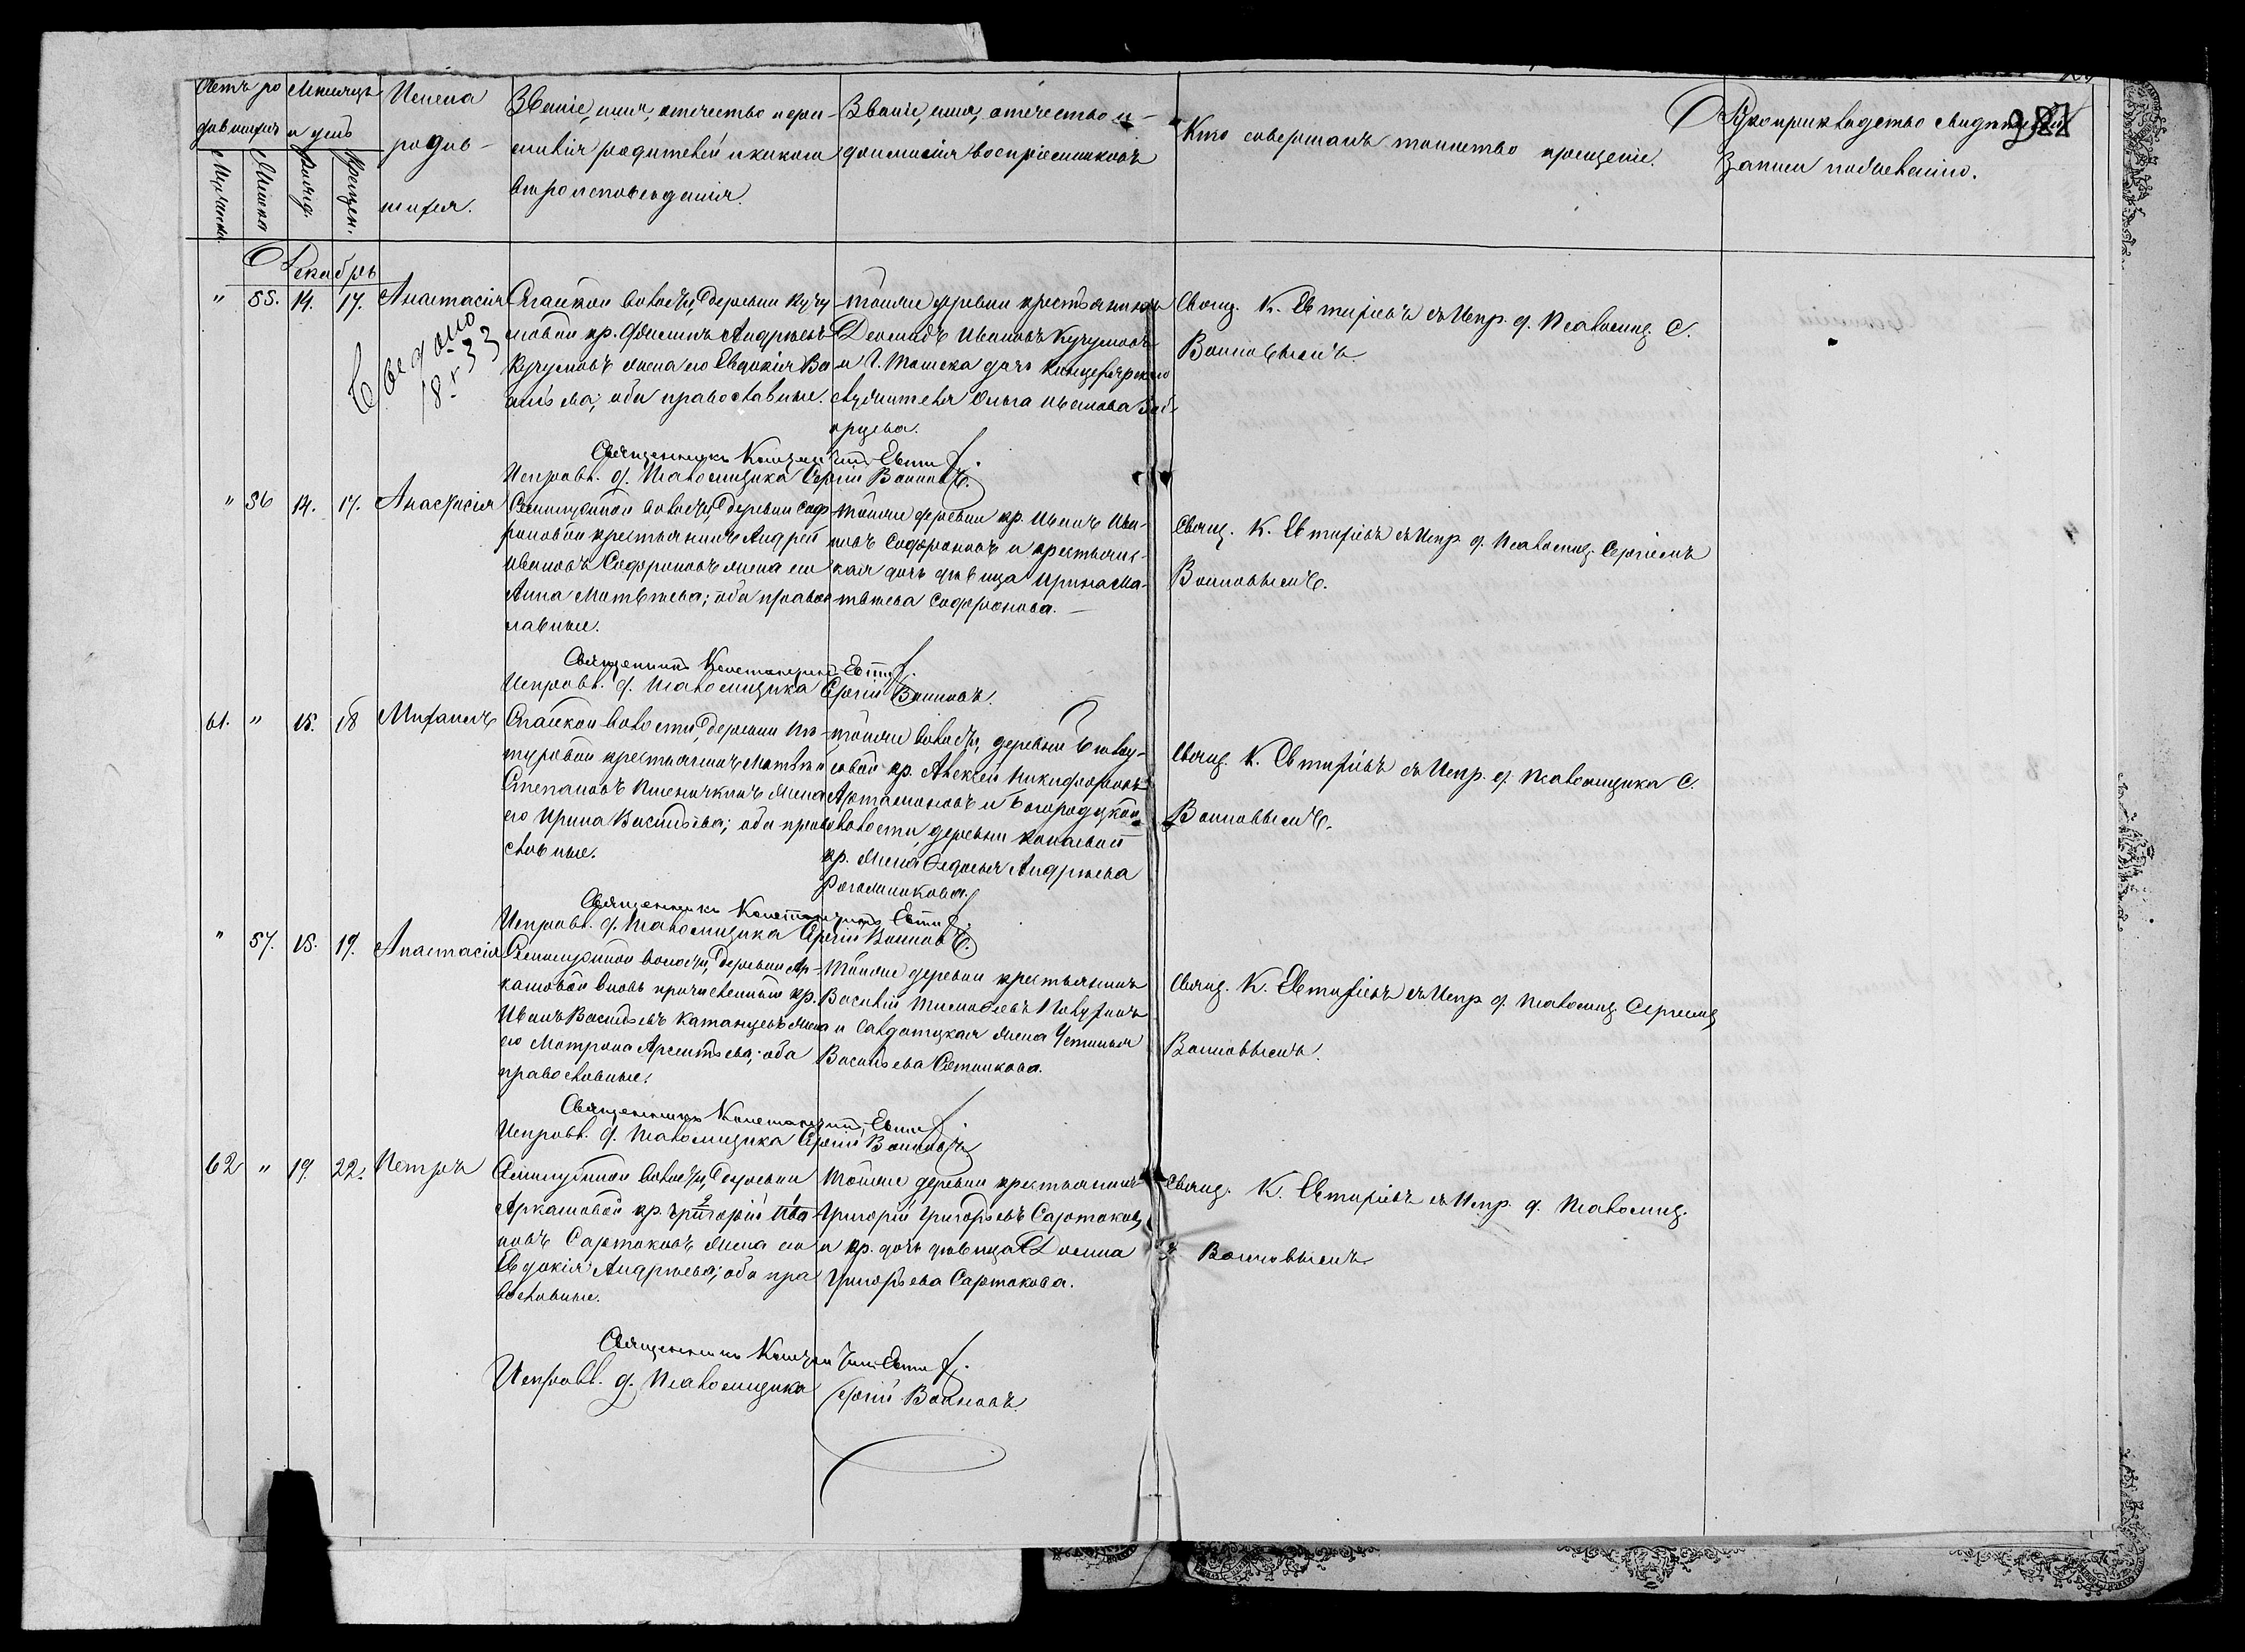 Счетъ ро
дившихся
Мѣсяцъ
и день
Имена
родив-
шихся.
Званіе, имя, отчество и фа-
милія родителей и какого
вѣроисповѣданія.
Званіе, имя, отчество и
фамилія воспріемниковъ
Кто совершалъ таинство крещенія.
Рукоприкладство свидѣтелей
записи по желанію.
Женска
Рожд.
Крещен.
Декабрь
" 55. 14. 17. Анастасія
Спасской волости, деревни Кучу
мовой кр. Андреевъ
Кучумовъ жена его Евдокія Ва
сильева; оба православные.
тойже деревни крестьянинъ
Диомидъ Ивановъ Кучумовъ
и Г. Томска дочь канцелярского
служителя Ольга Иванова
Свящ. К. Евтихіевъ съ Испр. д. Псаломщ. С.
Воиновымъ.
Сведено
18 33
Священникъ Константинъ Евтих.
Исправл. д. Псаломщика Сергій Воиновъ.
" 56 14. 17. Анастасія
Семилужной волости, деревни Соф
роновой крестьянинъ Андрей
Ивановъ Софроновъ жена его
Анна Матвѣева; оба правос
лавные.
тойже деревни кр. Иванъ Ива-
новъ Софроновъ и крестьянс-
кая дочь дѣвица Ирина Ма-
твѣева Софронова.
Свящ. К. Евтихіевъ съ Испр. д. Псаломщ. Сергіемъ
Воиновымъ.
Священникъ Константинъ Евтих.
Исправл. д. Псаломщика Сергій Воиновъ.
61. " 15. 18 Михаилъ
Спасской волости, деревни
туровой крестьянинъ Матвѣй
Степановъ Пшеничкинъ жена
его Ирина Васильева; оба право
славные.
тойже волости, деревни
кр. Алексѣй Никифоровъ
Артамоновъ и Богородской
волости, деревни
кр. жена Андреева
Рогожникова.
Свящ. К. Евтихіевъ съ Испр. д. Псаломщика С.
Воиновымъ.
Священникъ Константинъ Евтих.
Исправл. д. Псаломщика Сергій Воиновъ.
" 57. 15. 19. Анастасія
Семилужной волости, деревни Ар-
кашовой вновь причисленный кр.
Иванъ Васильевъ Катанцевъ жена
его Матрона Арсентьева; оба
православные.
тойже деревни крестьянинъ
Василій Тимофеевъ
и Солдатская жена Устинья
Васильева Сотникова.
Свящ. К. Евтихіевъ съ Испр. д. Псаломщ. Сергіемъ
Воиновымъ.
Священникъ Константинъ Евтих.
Исправл. д. Псаломщика Сергій Воиновъ
62 " 19. 22. Петръ
Семилужной волости, деревни
Аркашовой кр. Григорій Ива
новъ Сартаковъ жена его
Евдокія Андреева; оба пра
вославные.
тойже деревни крестьянинъ
Григорій Григорьевъ Сартаковъ
и кр. дочь дѣвица Домна
Григорьева Сартакова.
Свящ. К. Евтихіевъ съ Испр. д. Псаломщ.
Воиновымъ.
Священникъ Константинъ Евтих.
Исправл. д. Псаломщика Сергій Воиновъ.